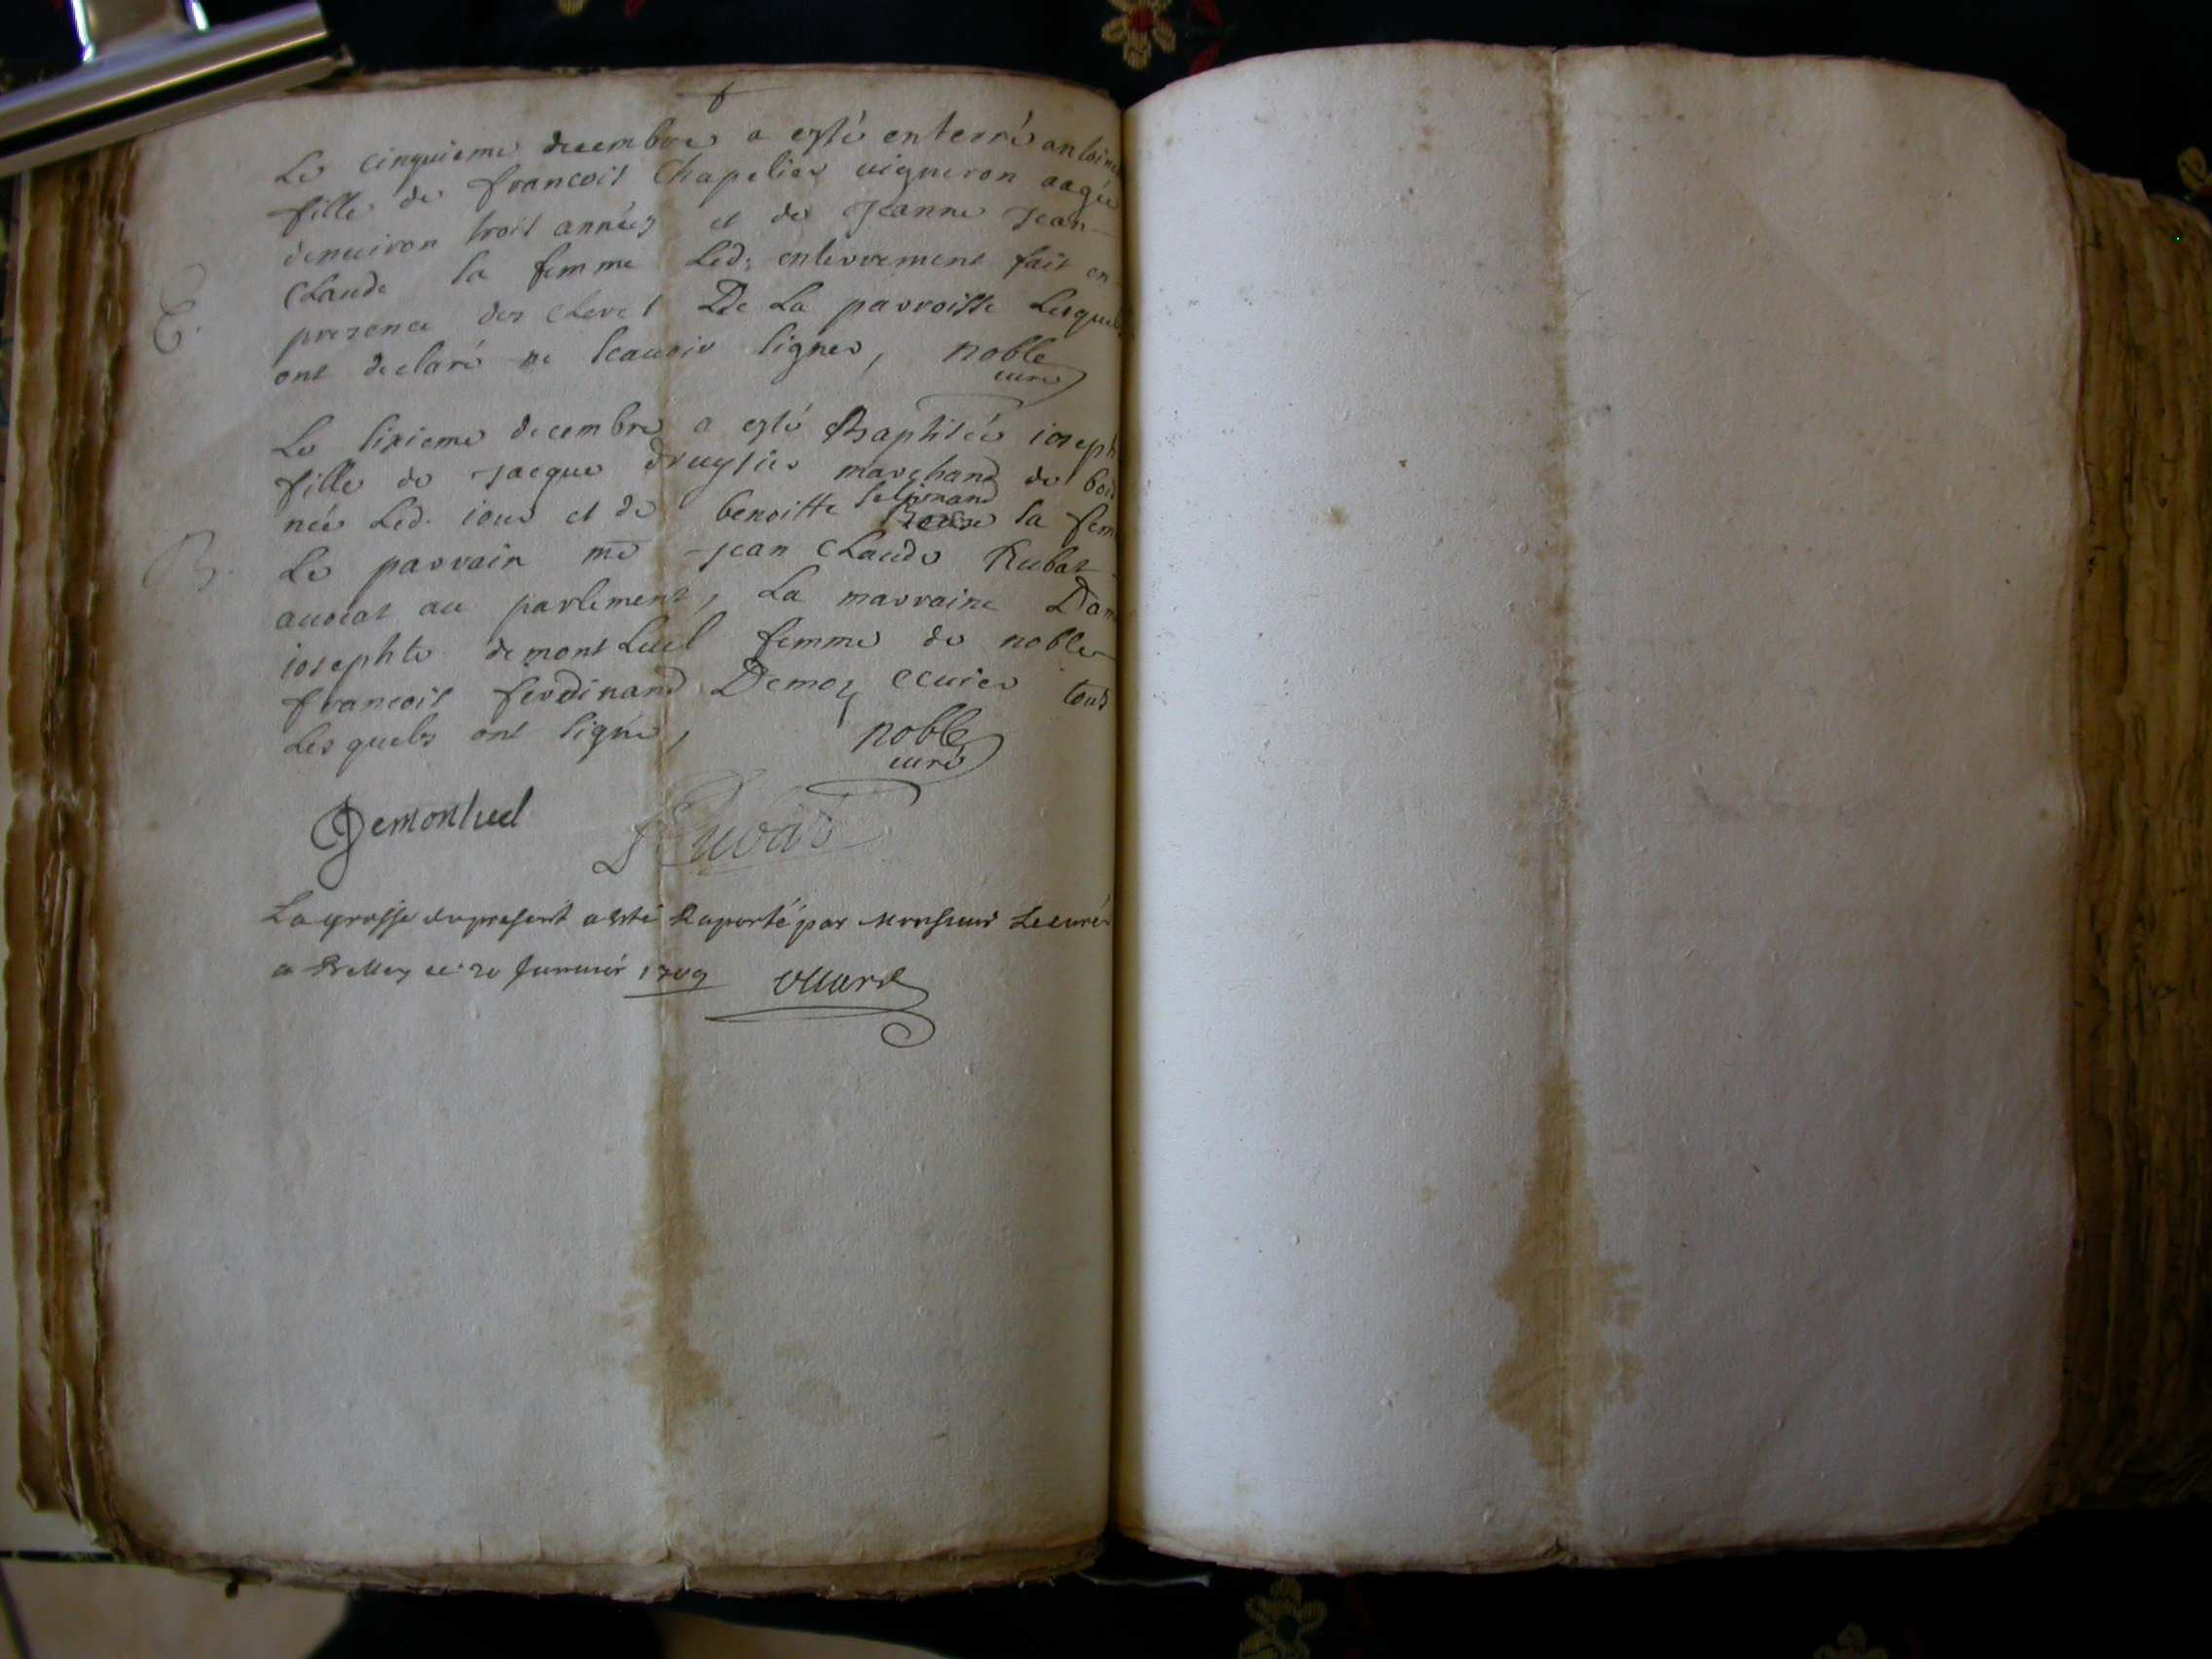 Le cinquieme decembre a esté enterré antoine
fille de francois Chapelier uigneron aagée
denuiron trois années et de Jeanne Jean
Claude sa femme led. enterrement fait en
E.
presence des clercs De La parroisse Lesquels
ont declaré ne scauoir signer, noble
curé
Le sixieme decembre a esté Baptisée ioseph
fille de Jacque marchand de bois
née Led. iour et de benoitte la fem
B.
Le parrain me Jean Claude Rubat
auocat au parlement, La marraine Dam
iosephte demontLuel femme de noble
francois ferdinand Demoz ecuier tous
Lesquels ont signé,
noble
curé
Demonluel Rubat
La grosse du present a esté Raporté par Monsieur Le curé
a Belley ce 20 Januier 1709